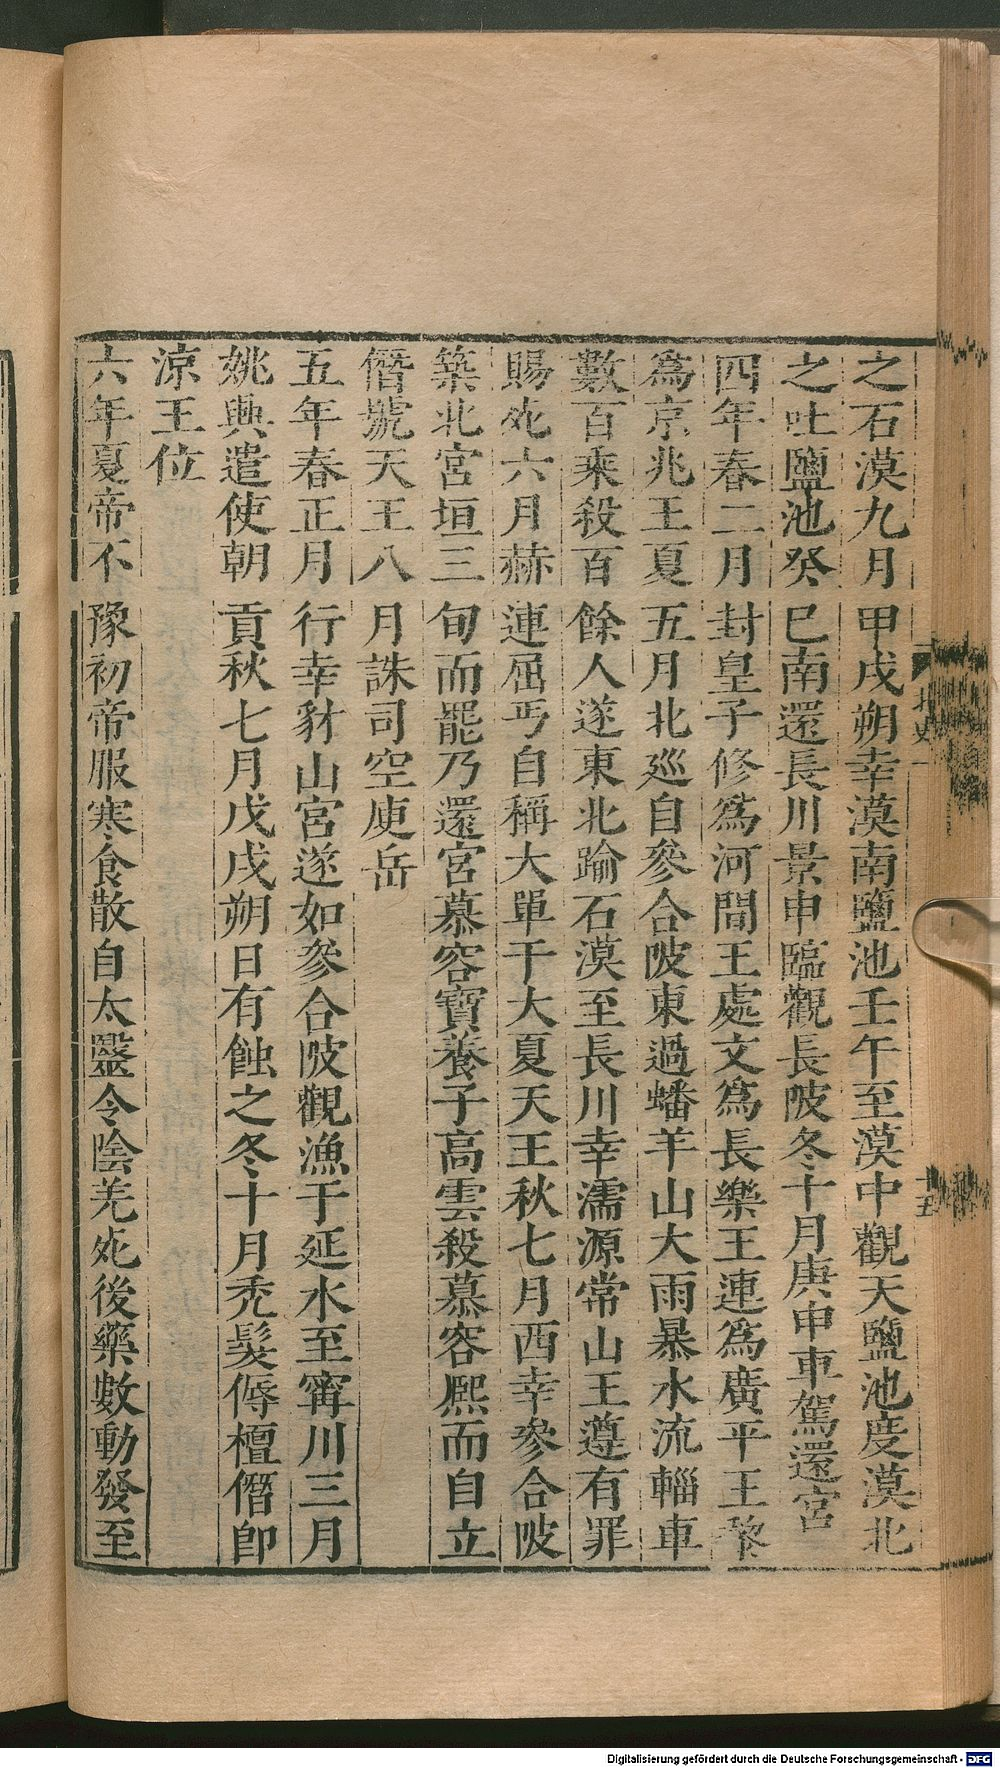 之石漠九月甲戌朔幸漠南鹽池壬午至漠中觀天鹽池度漠北
之吐鹽池癸巳南還長川景申臨觀長陂冬十月庚申車駕還宮
四年春二月封皇子修爲河間王處文爲長樂王連爲廣平王黎
爲京兆王夏五月北廵自參合陂東過蟠羊山大雨暴水流輜車
數百乘殺百餘人遂東北踰石漠至長川幸濡源常山王遵有罪
賜死六月赫連屈丐自稱大單于大夏天王秋七月西幸參合陂
築北宮垣三旬而罷乃還宮慕容寶養子高雲殺慕容熙而自立
僭號天王八月誅司空庾岳
五年春正月行幸豺山宮遂如參合陂觀漁于延水至甯川三月
姚興遣使朝貢秋七月戊戌朔日有蝕之冬十月禿髮傉檀僭即
涼王位
六年夏帝不豫初帝服寒食散自太醫令陰羌死後藥數動發至
北史一
十五
Digitalisierung gefördert durch die Deutsche Forschungsgemeinschaft - DFG